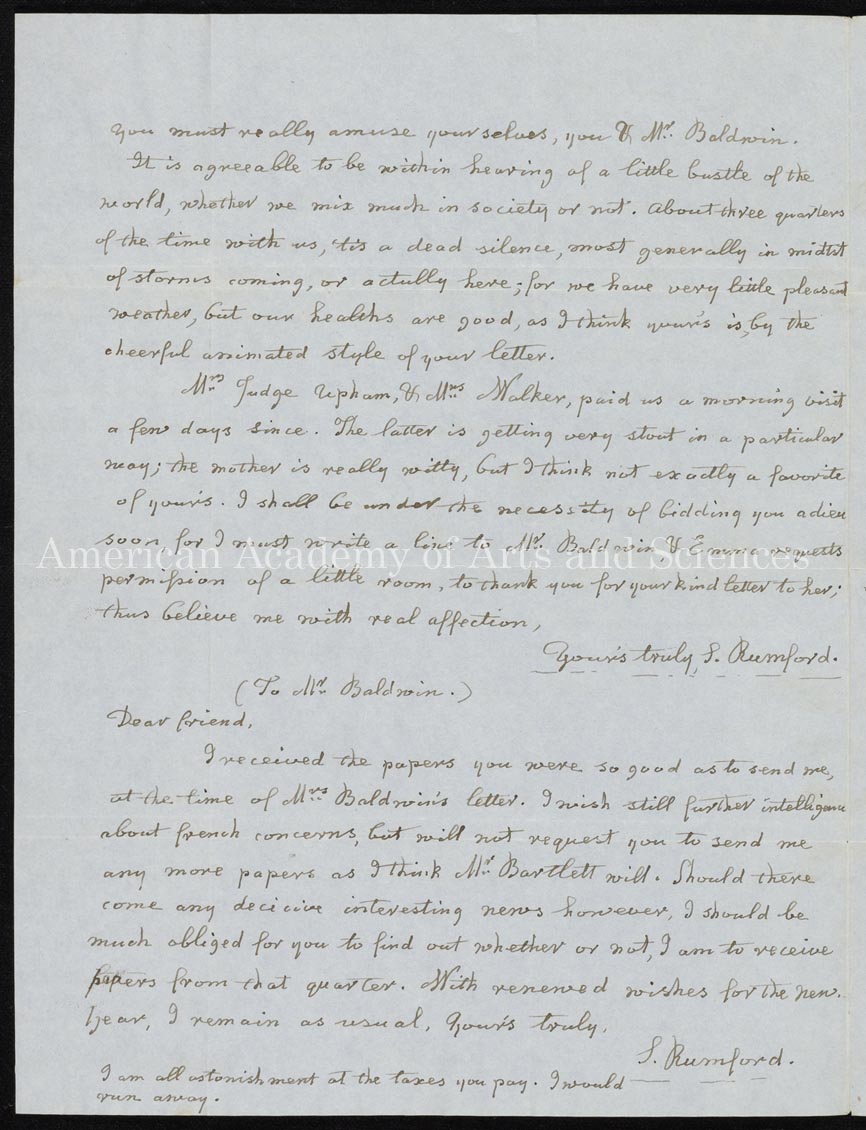 you must really amuse yourselves, you & Mr. Baldwin.
It is agreeable to be within hearing of a little bustle of the
world, whether we mix much in society or not. About three quarters
of the time with us, 'tis a dead silence, most generally in midst
of storms coming, or actully here; for we have very little pleasant
weather, but our healths are good, as I think your's is, by the
cheerful animated style of your letter.
Mrs Judge Upham, & Mrs Walker, paid us a morning visit
a few days since. The latter is getting very stout in a particular
way; the mother is really witty, but I think not exactly a favorite
of your's. I shall be under the necessity of bidding you adieu
soon, for I must write a line to Mr. Baldwin, & Emma requests
American Academy of Arts and Sciences
permission of a little room, to thank you for your kind letter to her;
thus believe me with real affection,
Your's truly, S. Rumford.
(To Mr. Baldwin.)
Dear friend,
I received the papers you were so good as to send me,
at the time of Mrs Baldwin's letter. I wish still further intelligence
about french concerns, but will not request you to send me
any more papers as I think Mr. Bartlett will. Should there
come any decicive interesting news however, I should be
much obliged for you to find out whether or not, I am to receive
papers from that quarter. With renewed wishes for the new.
Year, I remain as usual, Your's truly,
S. Rumford.
I am all astonishment at the taxes you pay. I would
run away.